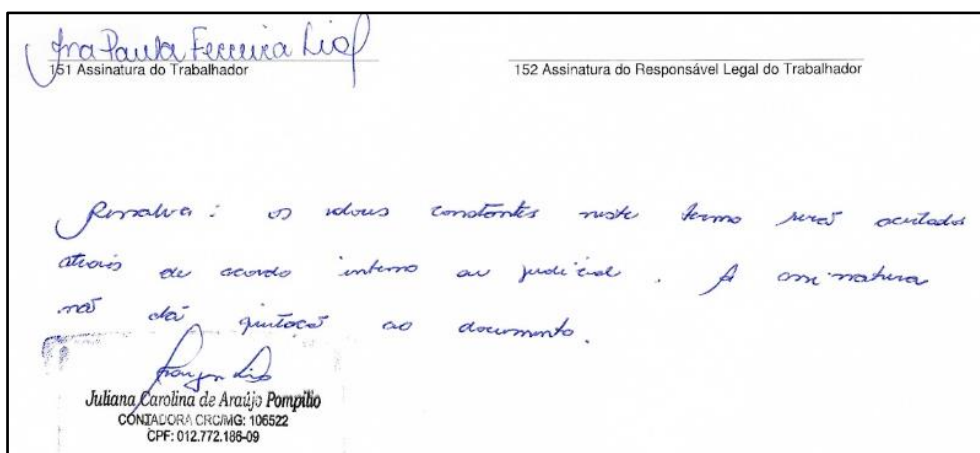 Ana Paula Ferreira Lial
151 Assinatura do Trabalhador
152 Assinatura do Responsável Legal do Trabalhador
Ressalva: os valores constantes neste termo serão acertados
através de acordo interno ou judicial. A assinatura
não dá quitação ao documento.
Juliana Carolina de Araújo Pompilio
CONTADORA CRC/MG: 106522
CPF: 012.772.186-09